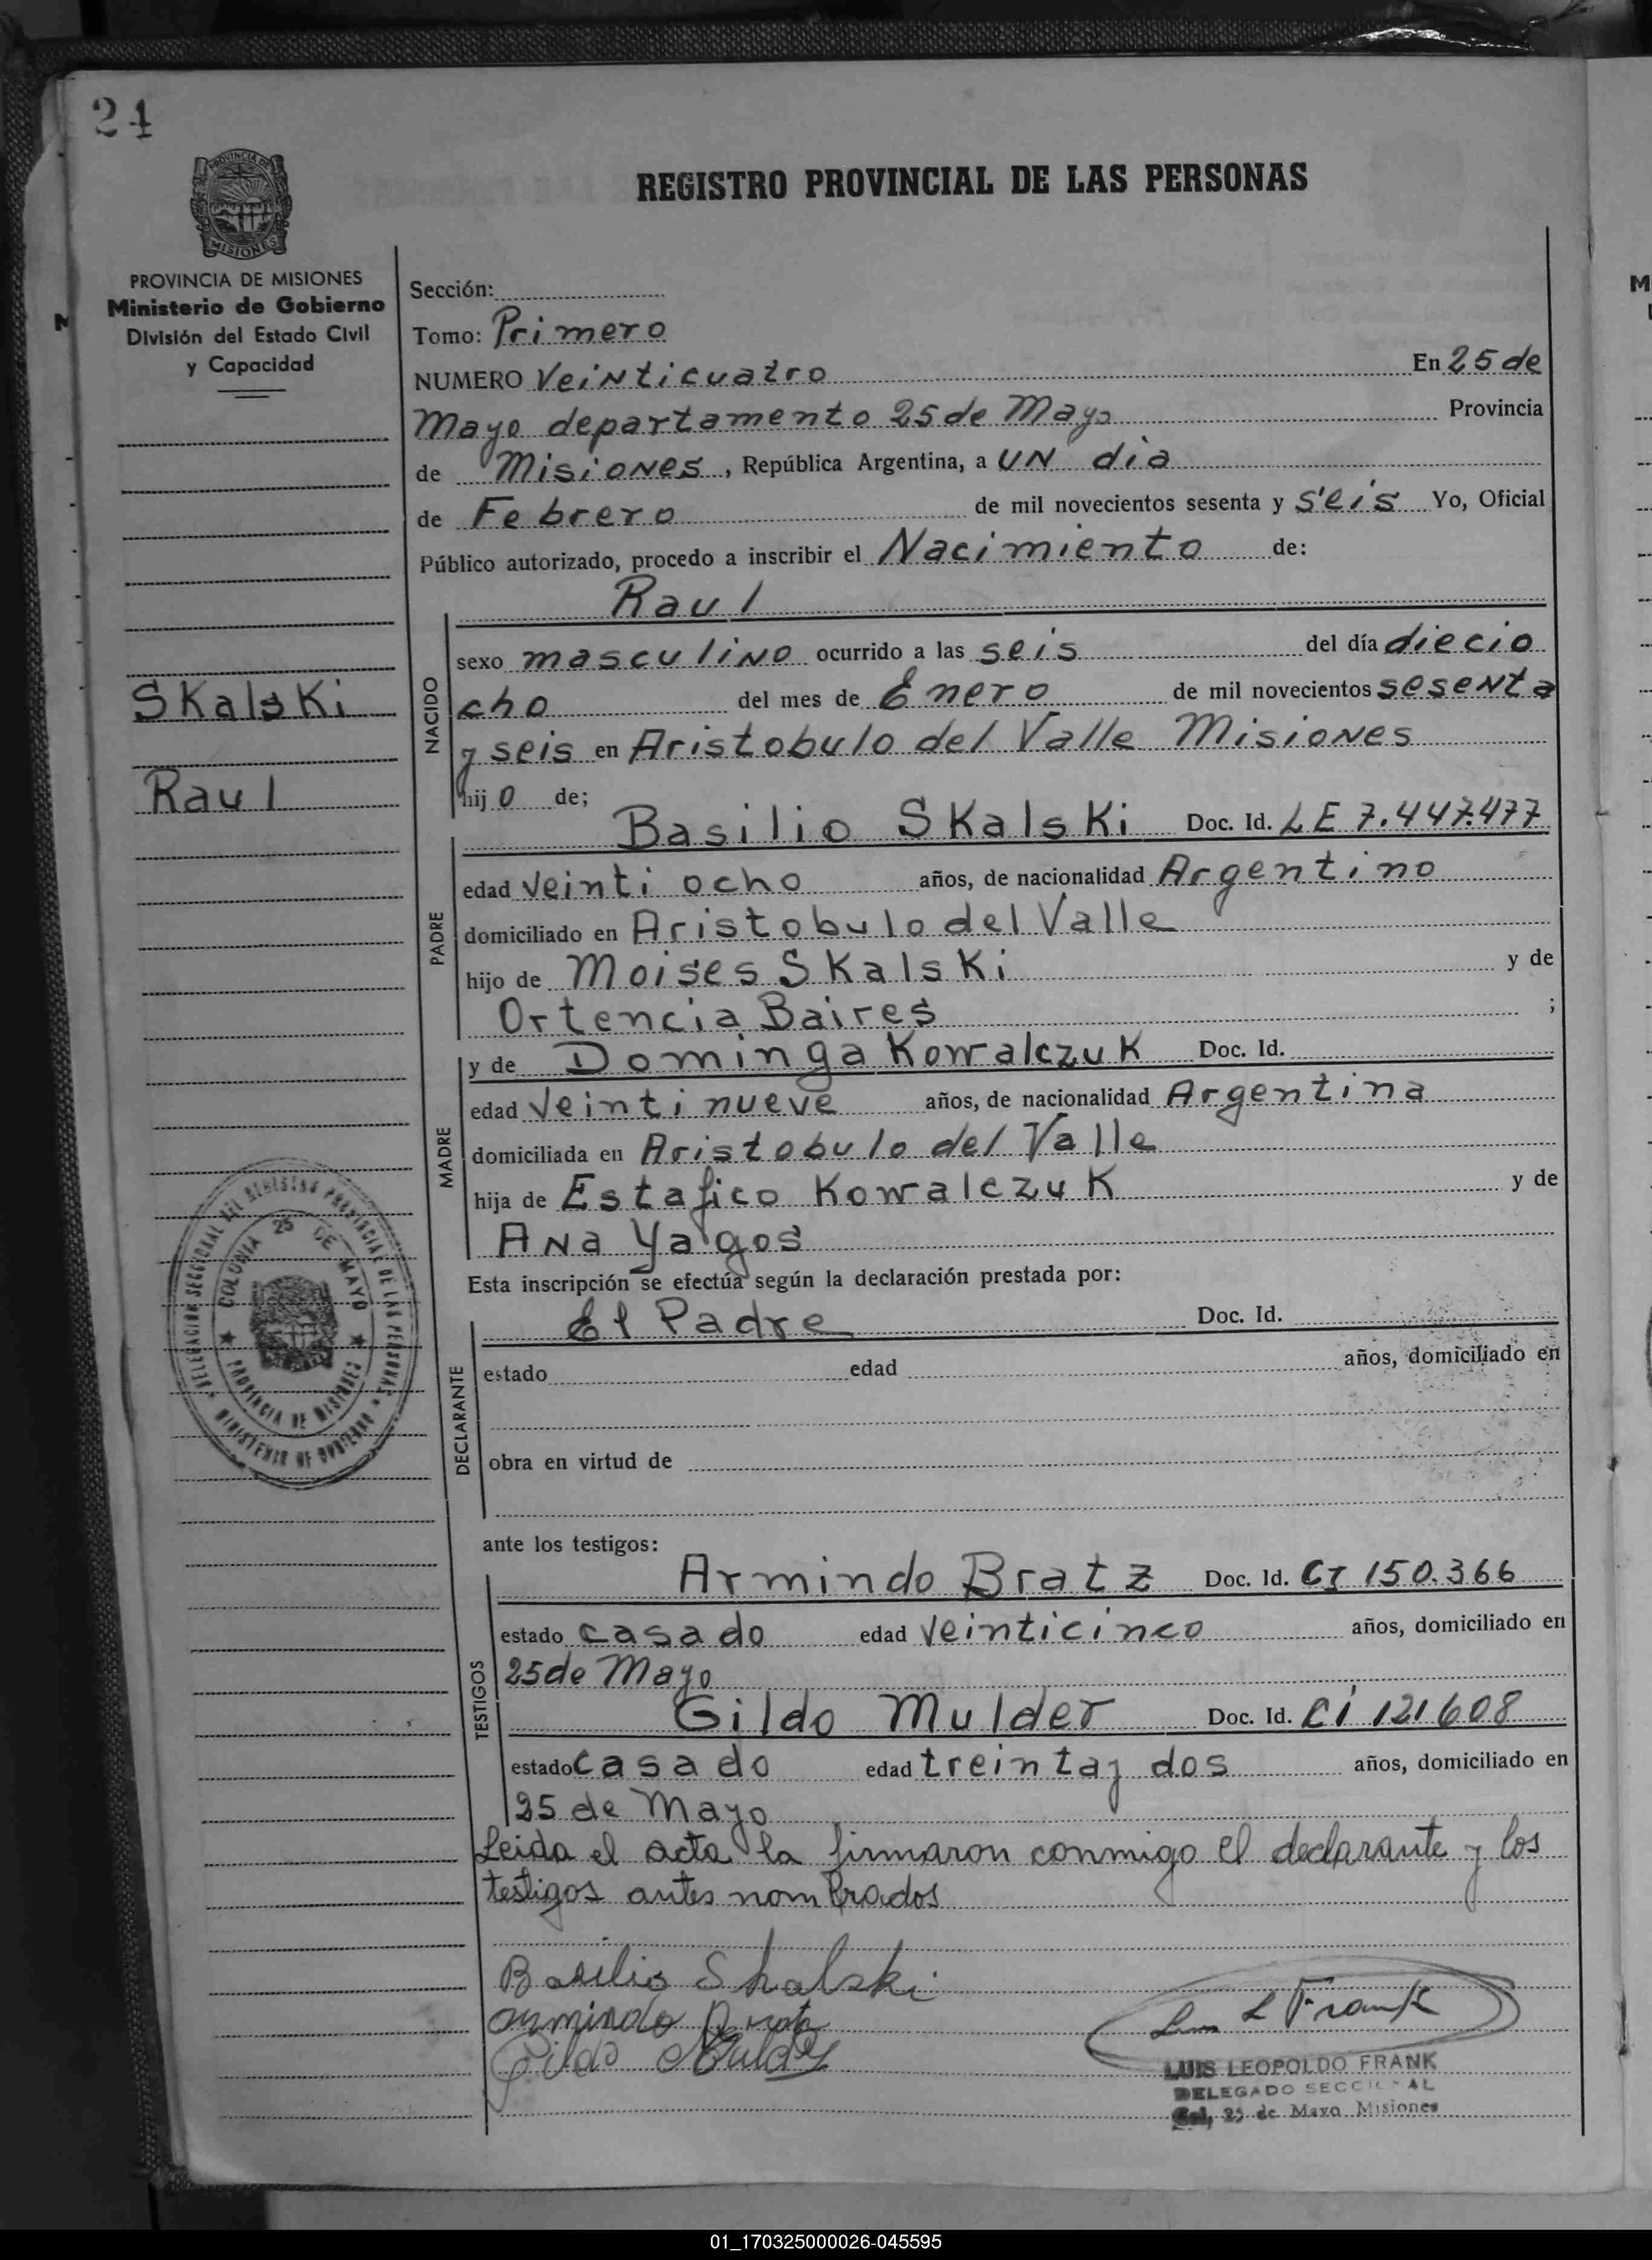 24
PROVINCIA DE
MISIONES
REGISTRO PROVINCIAL DE LAS PERSONAS
PROVINCIA DE MISIONES
Ministerio de Gobierno
División del Estado Civil
y Capacidad
Skalski
Raul
Sección:
Tomo: Primero
NUMERO Veinticuatro En 25 de
Mayo departamento 25 de Mayo Provincia
de Misiones, República Argentina, a UN dia
de Febrero de mil novecientos sesenta y seis Yo, Oficial
Público autorizado, procedo a inscribir el Nacimiento de:
Raul
NACIDO
sexo masculino ocurrido a las seis del día diecio
cho del mes de Enero de mil novecientos sesenta
y seis en Aristobulo del Valle Misiones
hijo de;
PADRE
Basilio Skalski Doc. Id. LE 7.447.477
edad veinti ocho años, de nacionalidad Argentino
domiciliado en Aristobulo del Valle
hijo de Moises Skalski y de
Ortencia Baires ;
MADRE
y de Dominga Kowalczuk Doc. Id.
edad veinti nueve años, de nacionalidad Argentina
domiciliada en Aristobulo del Valle
hija de Estafico Kowalczuk y de
Ana Yagos
Esta inscripción se efectúa según la declaración prestada por:
DECLARANTE
El Padre Doc. Id.
estado edad años, domiciliado en
obra en virtud de
ante los testigos:
TESTIGOS
Armindo Bratz Doc. Id. CI 150.366
estado casado edad veinticinco años, domiciliado en
25 de Mayo
Gildo Mulder Doc. Id. CI 121608
estado casado edad treinta y dos años, domiciliado en
25 de Mayo
Leida el acta la firmaron conmigo el declarante y los
testigos antes nombrados
Basilio Skalski
Armindo Bratz
Gildo Mulder
L Frank
LUIS LEOPOLDO FRANK
DELEGADO SECCIONAL
Col. 25 de Mayo Misiones
DELEGACION SECCIONAL DEL REGISTRO PROVINCIAL DE LAS PERSONAS
MINISTERIO DE GOBIERNO
COLONIA 25 DE MAYO
PROVINCIA DE MISIONES
01_170325000026-045595